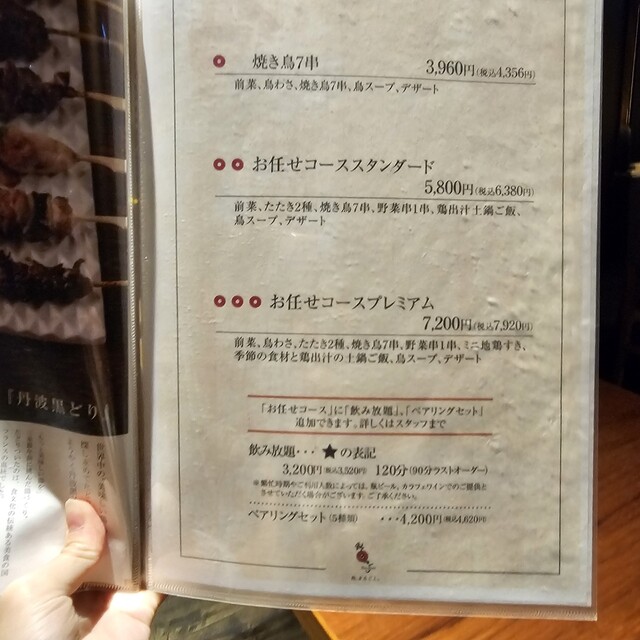 焼き鳥7串 3,960円(税込4,356円)
前菜、鳥わさ、焼き鳥7串、鳥スープ、デザート
お任せコーススタンダード
5,800円(税込6,380円)
前菜、たたき2種、焼き鳥7串、野菜串1串、鶏出汁土鍋ご飯、
鳥スープ、デザート
お任せコースプレミアム
7,200円(税込7,920円)
前菜、鳥わさ、たたき2種、焼き鳥7串、野菜串1串、ミニ地鶏すき、
季節の食材と鶏出汁の土鍋ご飯、鳥スープ、デザート
「お任せコース」に「飲み放題」、「ペアリングセット」
追加できます。詳しくはスタッフまで
飲み放題・・・★の表記
3,200円(税込3,520円) 120分(90分ラストオーダー)
※繁忙時期やご利用人数によっては、瓶ビール、カラフェワインでのご提供と
させていただく場合がございます。ご了承ください。
ペアリングセット(5種類) ・・・4,200円(税込4,620円)
「丹波黒どり」